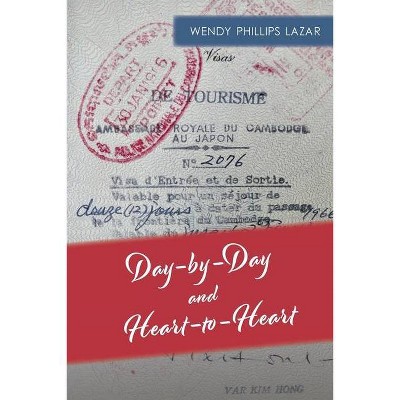 WENDY PHILLIPS LAZAR
Visas
DEPART
DE TOURISME
AMBASSADE ROYALE DU CAMBODGE
AU JAPON
Nº 2076
Visa d'Entrée et de Sortie.
Valable pour un séjour de
douze (12) jours à dater du passage
la frontière du Cambodge 1966
Day-by-Day
and
Heart-to-Heart
VAR KIM HONG